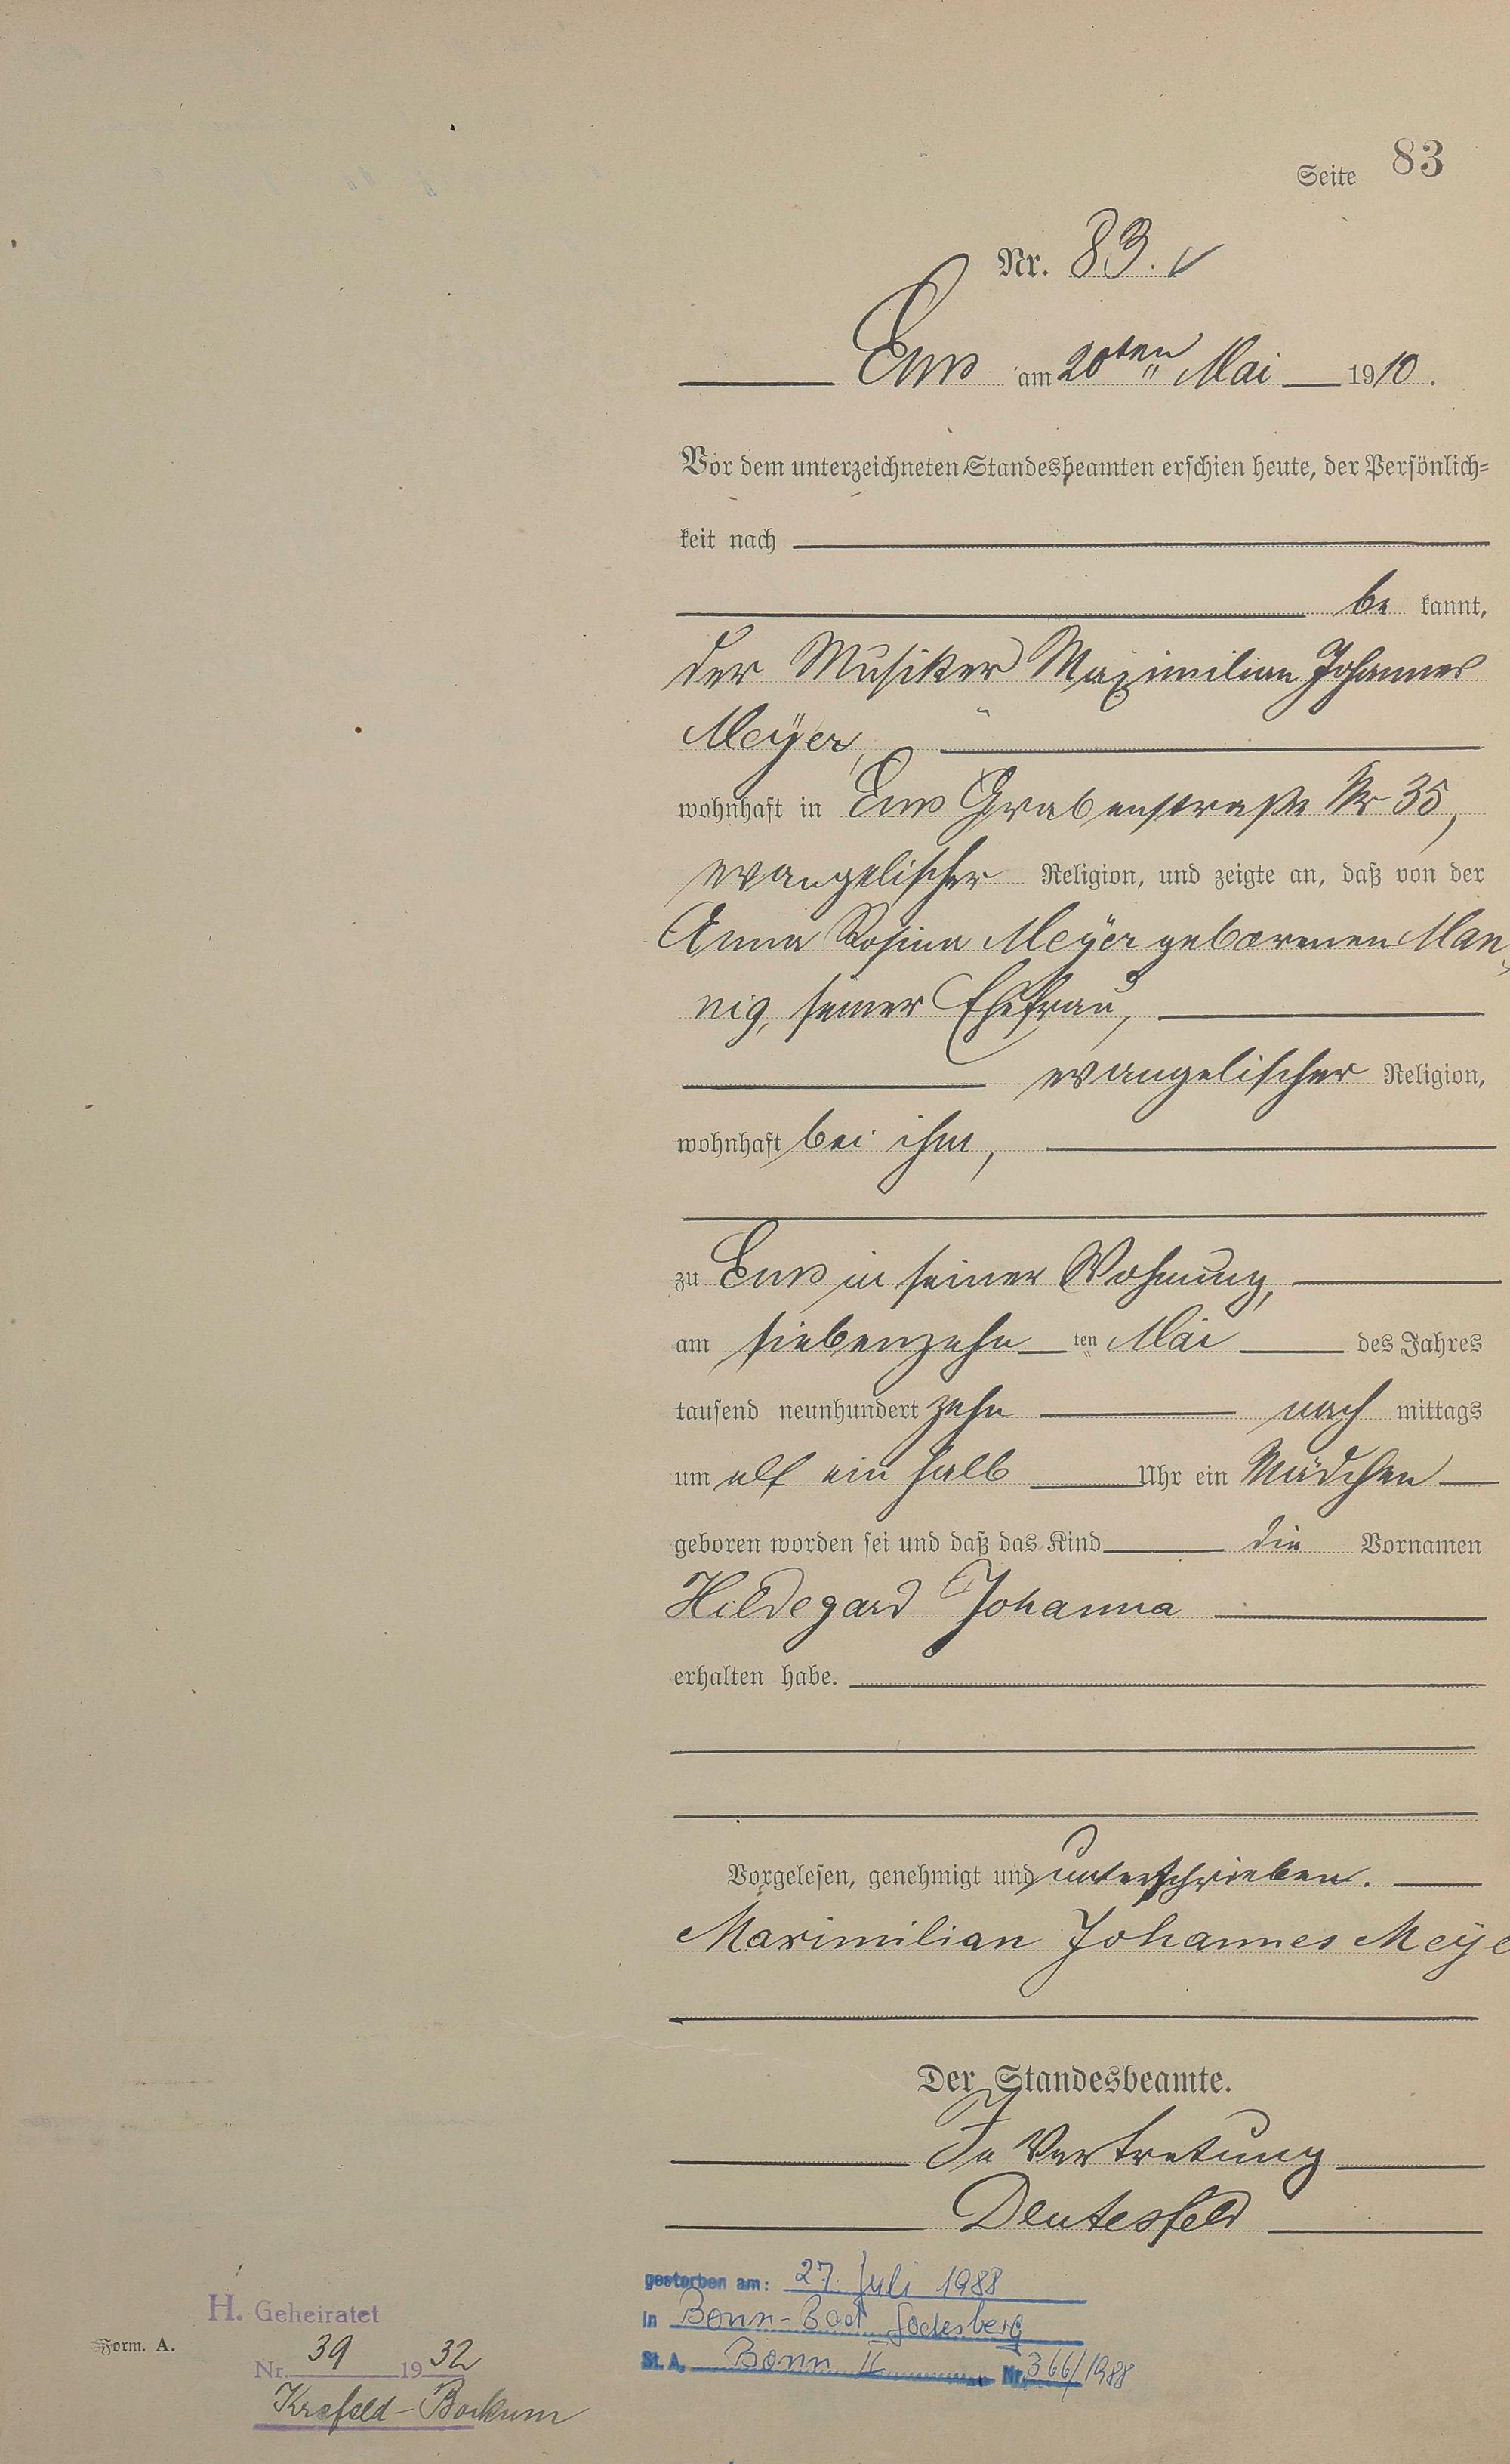 Seite 83
Nr. 83.
Ems am 20ten Mai 1910.
Vor dem unterzeichneten Standesbeamten erschien heute, der Persönlich=
keit nach
be kannt,
der Musiker Maximilian Johannes
Meÿer,
wohnhaft in Ems Grabenstraße Nr 35,
evangelischer Religion, und zeigte an, daß von der
Anna Rosina Meÿer geborenen Man
nig, seiner Ehefrau,
evangelischer Religion,
wohnhaft bei ihm,
zu Ems in seiner Wohnung,
am siebenzehn ten Mai des Jahres
tausend neunhundert zehn nach mittags
um elf ein halb Uhr ein Mädchen
geboren worden sei und daß das Kind die Vornamen
Hildegard Johanna
erhalten habe.
Vorgelesen, genehmigt und unterschrieben.
Maximilian Johannes Meÿe
Der Standesbeamte.
In Vertretung
Deutesfeld
gestorben am: 27. Juli 1988
in Bonn-Bad Godesberg
St. A. Bonn II Nr. 366/1988
H. Geheiratet
Nr. 39 1932
Krefeld-Bockum
Form. A.